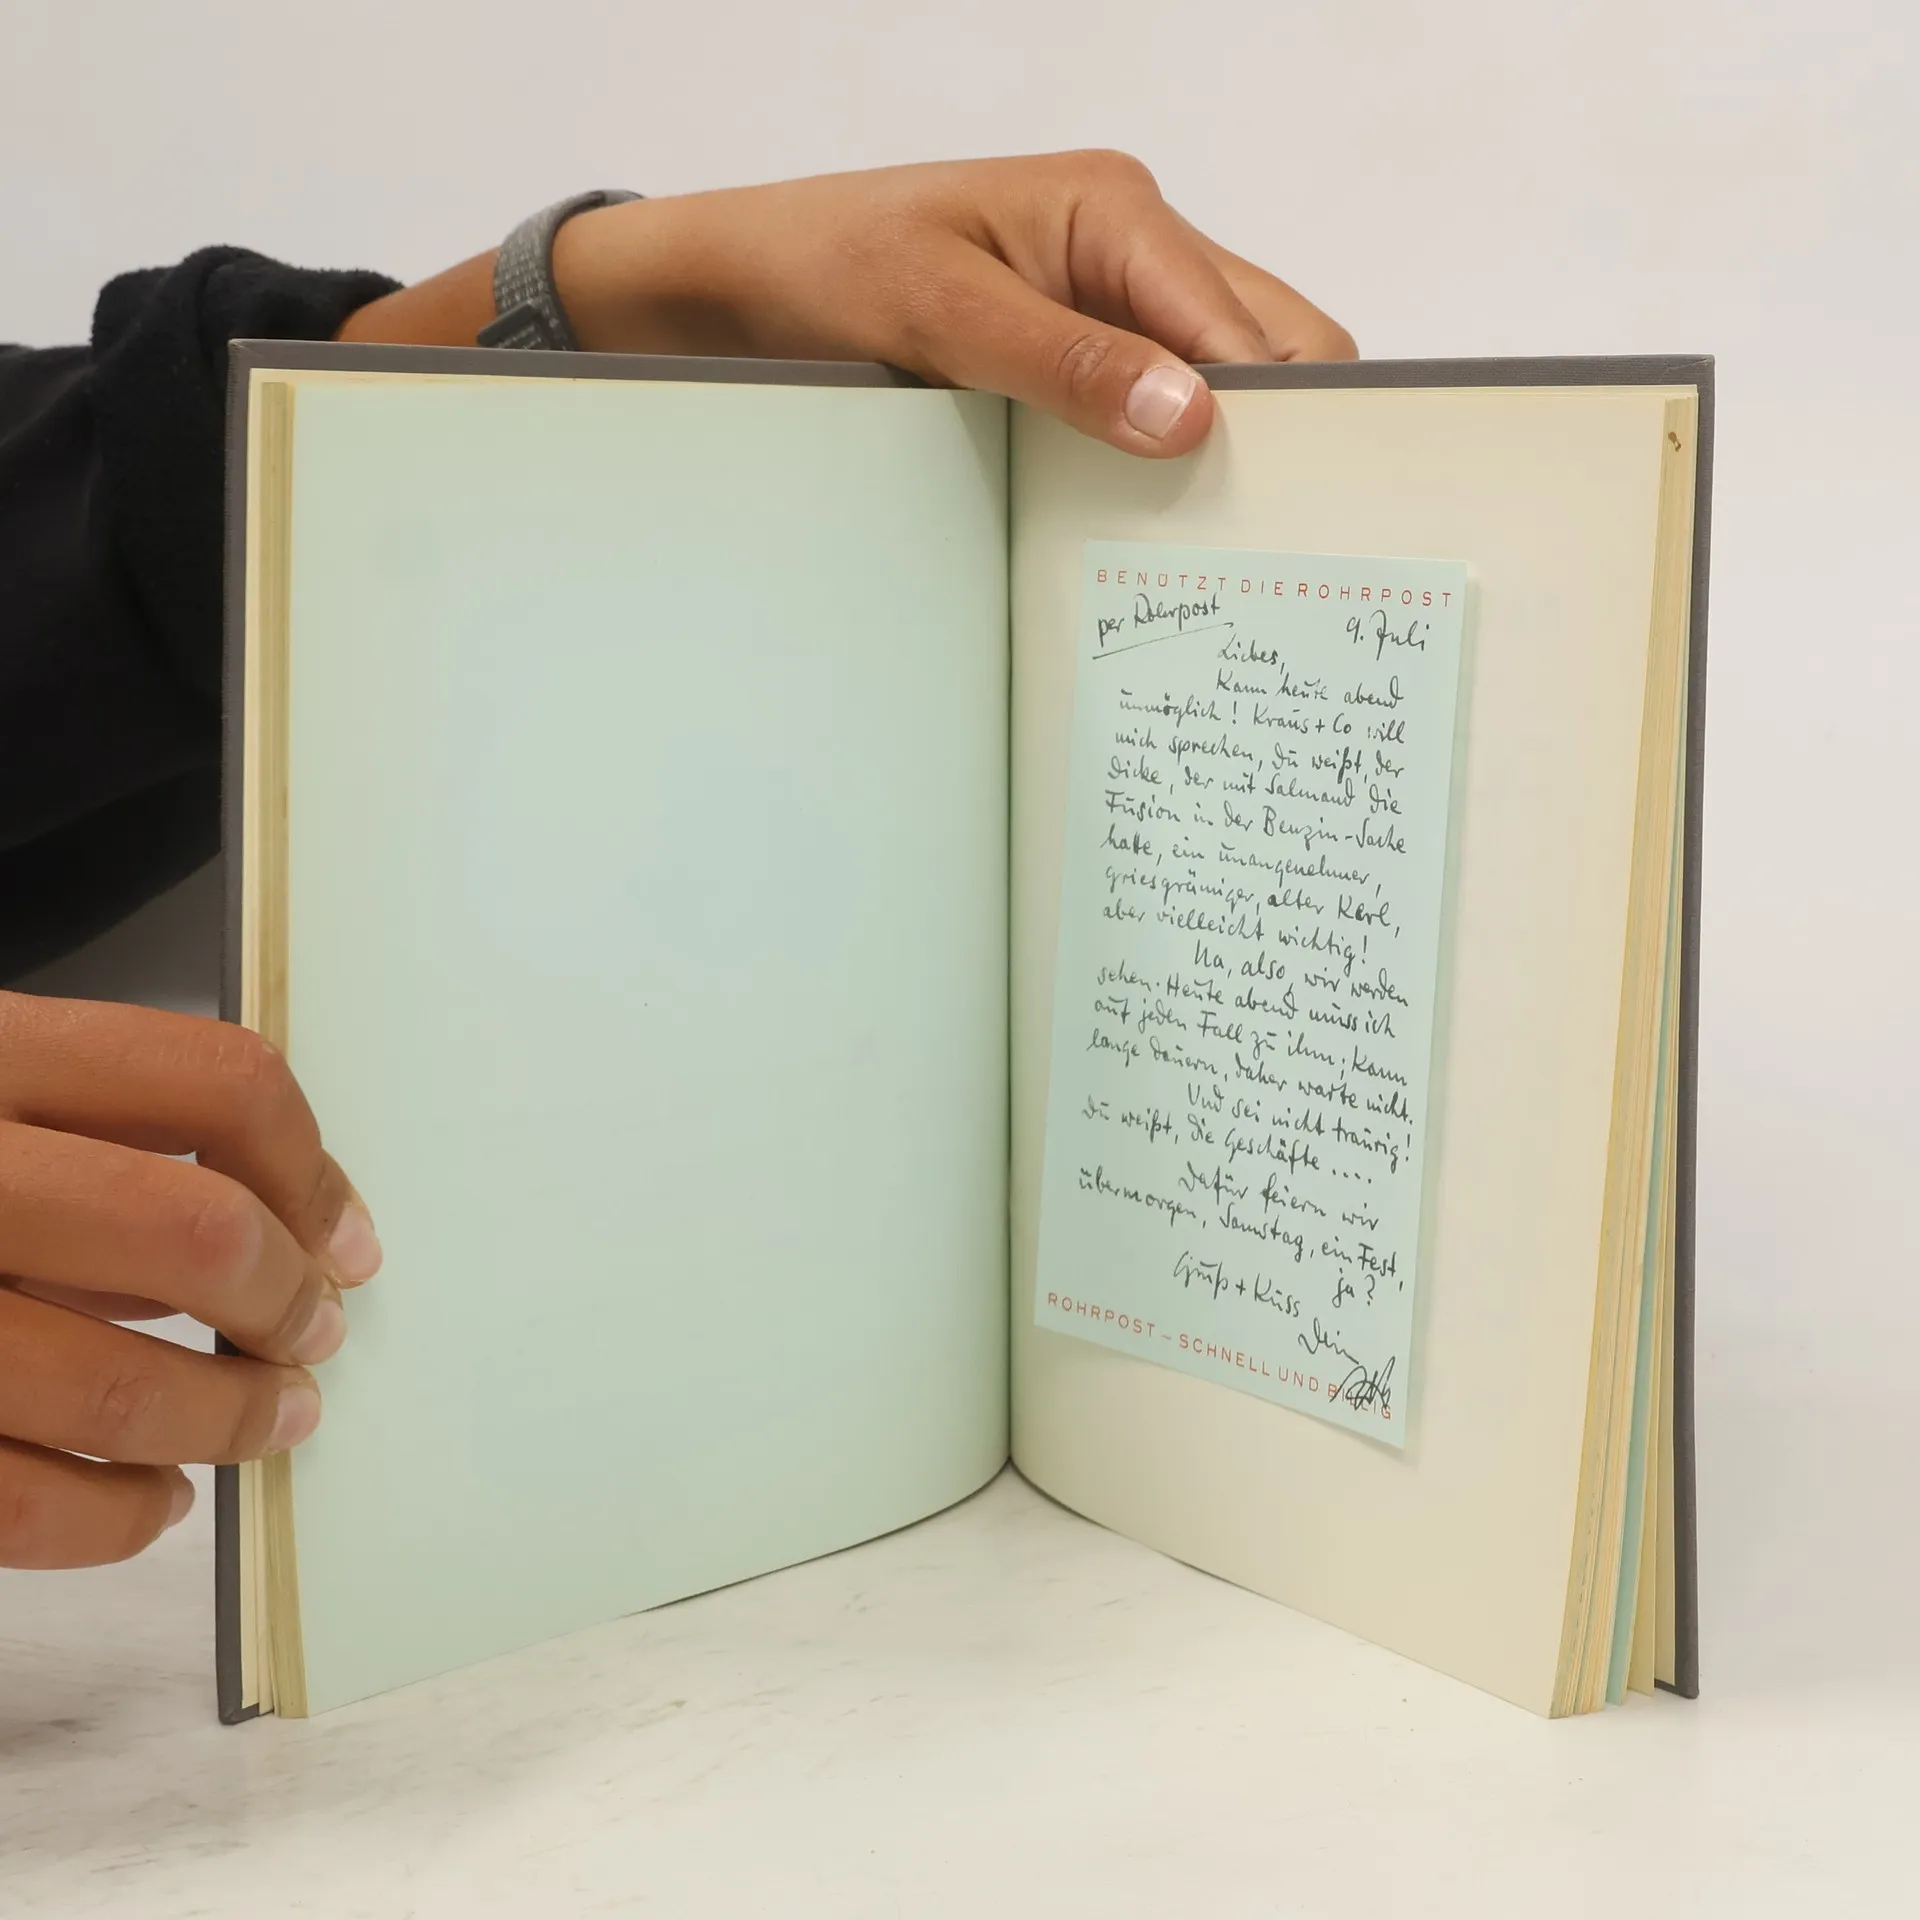 BENÜTZT DIE ROHRPOST
per Rohrpost
9. Juli
Liebes,
Kann heute abend
unmöglich! Kraus + Co will
mich sprechen, Du weißt, der
Dicke, der mit Salmand die
Fusion in der Benzin-Sache
hatte, ein unangenehmer,
griesgrämiger, alter Kerl,
aber vielleicht wichtig!
Na, also, wir werden
sehen. Heute abend muss ich
auf jeden Fall zu ihm; kann
lange dauern, daher warte nicht.
Und sei nicht traurig!
Du weißt, die Geschäfte ....
Dafür feiern wir
übermorgen, Samstag, ein Fest,
ja?
Gruß + Kuss
Dein
ROHRPOST – SCHNELL UND BILLIG